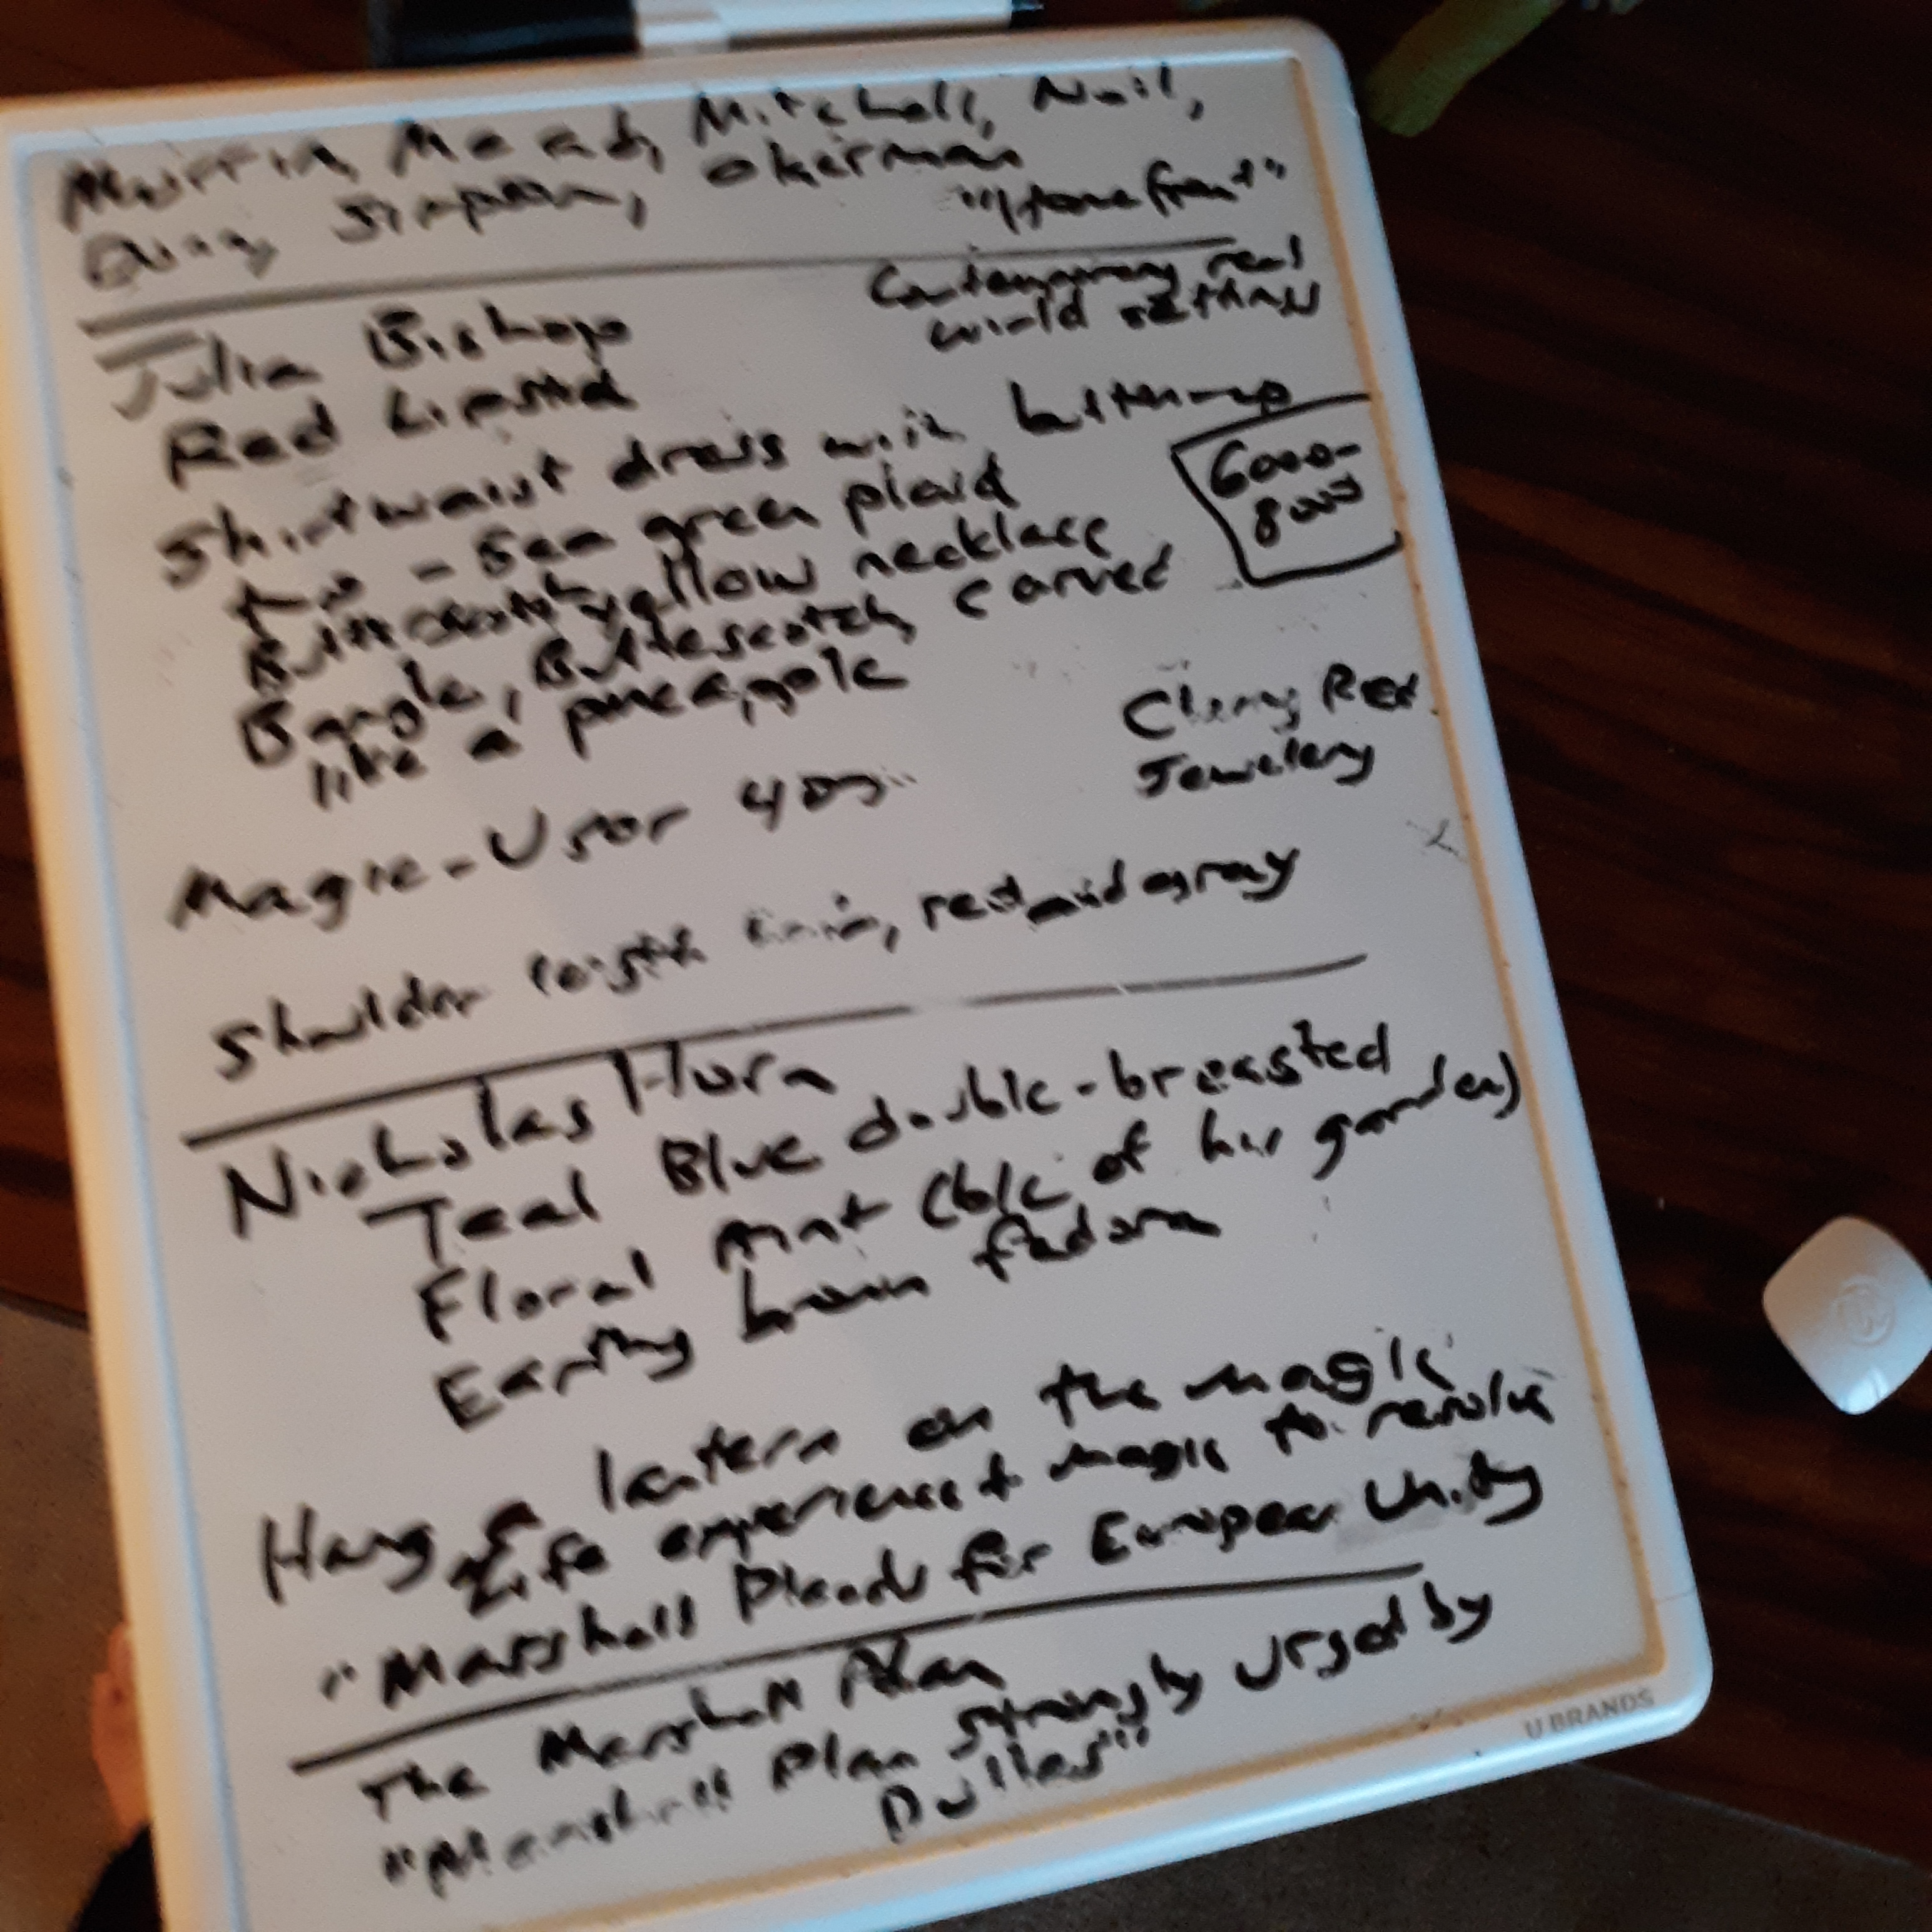 Mead, Mitchell, Neil,
Quinn, Simpson, Okerman
"Stonefront"
Contemporary real
world settings
Julia Bishop
Red Lipstick
Shirtwaist dress with button-up
top - Sea green plaid
6000-
8000
Butterscotch yellow necklace
Bangle, Butterscotch, carved
like a pineapple
Cherry Red
Jewelery
Magic-User 40s
Shoulder length hair, red and gray
Nicholas Horn
Teal Blue double-breasted
Floral print (b/c of his garden)
Earthy brown fedora
Hang a lantern on the magic
Life experience + magic to resolve
"Marshall Pleads for European Unity
The Marshall Plan
"Marshall Plan Strongly Urged by
Dulles"
U BRANDS